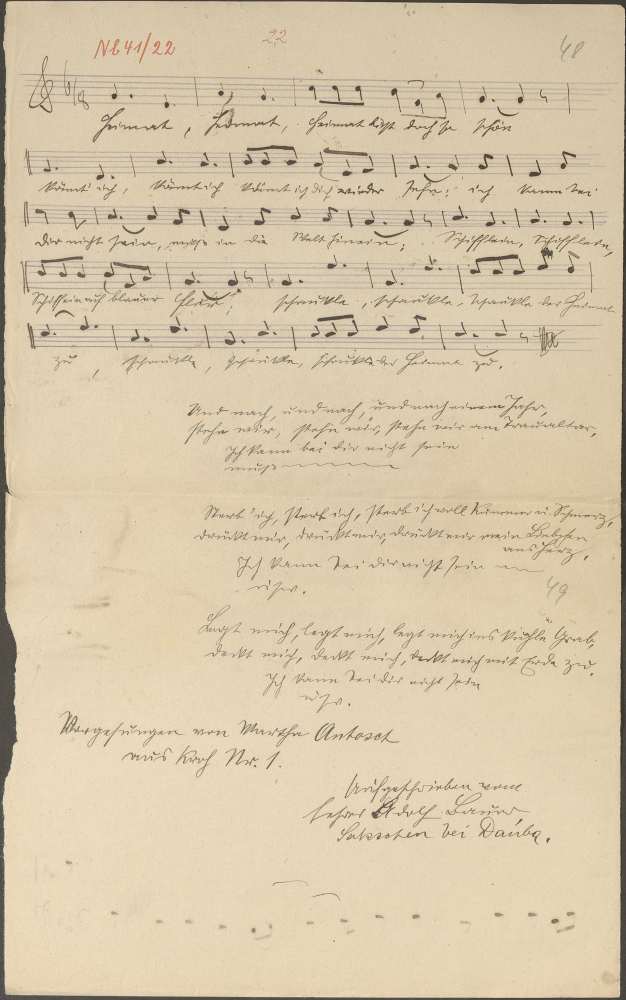 Nb 41/22
22
48
6/8
Heimat, Heimat, Heimat ist doch so schön
Könnt' ich, könnt ich könnt ich dich wieder sehn; ich kann bei
dir nicht sein, muss in die Welt hinein; Schifflein, Schifflein,
Schifflein auf blauer Flut; schaukle, schaukle, schaukle der Heimat
zu, schaukle, schaukle, schaukle der Heimat zu.
Und nach, und nach, und nach einem Jahr,
stehn wir, stehn wir, stehn wir am Traualtar,
Ich kann bei dir nicht sein
muss
Sterb' ich, sterb ich, sterb ich voll Kummer u. Schmerz,
drückt mir, drückt mir, drückt mir mein Liebchen
ans Herz.
Ich kann bei dir nicht sein
usw.
49
Legt mich, legt mich, legt mich ins kühle Grab,
deckt mich, deckt mich, deckt mich mit Erde zu.
Ich kann bei dir nicht sein
usw.
Vorgesungen von Martha Antosch
aus Kroh Nr. 1.
Aufgeschrieben vom
Lehrer Adolf Bauer
bei Dauba.